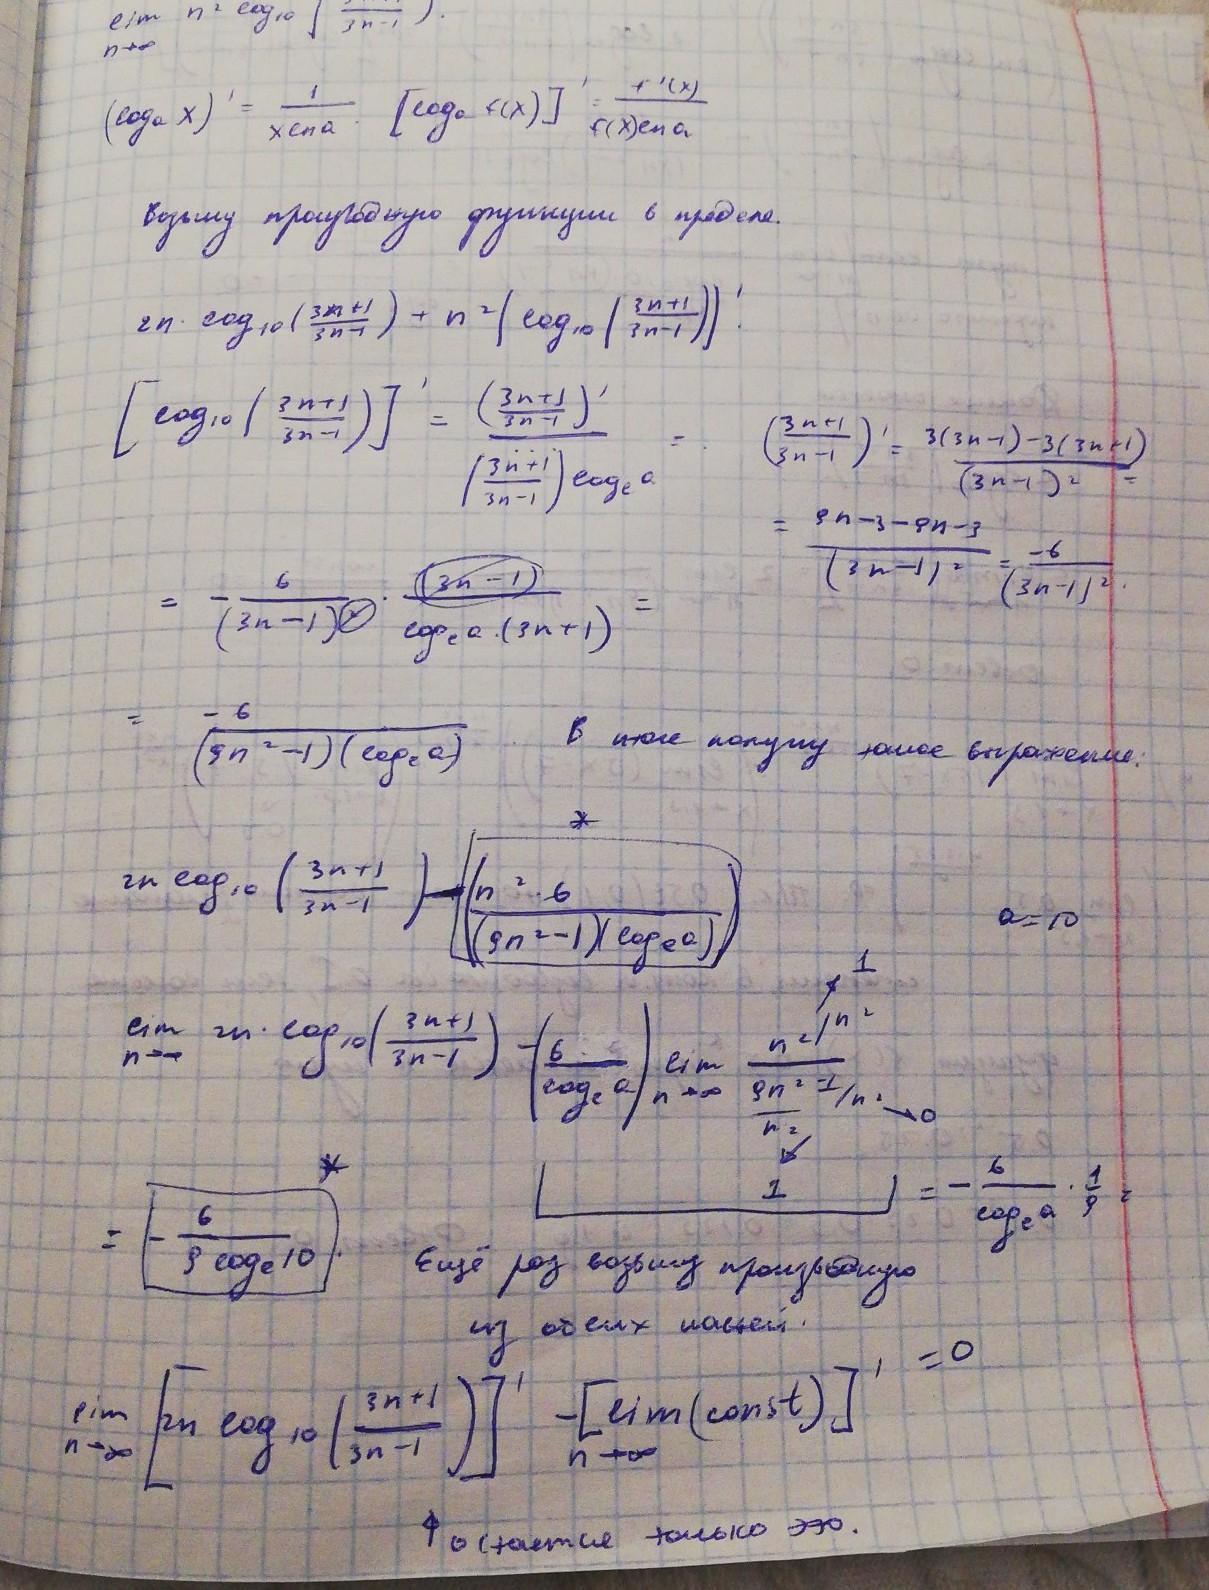 lim n→∞ n² log₁₀ (3n+1 / 3n-1).
(logₐ x)' = 1 / x ln a . [logₐ f(x)]' = f'(x) / f(x) ln a
Возьму производную функции в пределе.
2n · log₁₀ (3n+1 / 3n-1) + n² (log₁₀ (3n+1 / 3n-1))'.
[log₁₀ (3n+1 / 3n-1)]' = (3n+1 / 3n-1)' / (3n+1 / 3n-1) logₑ a = .
(3n+1 / 3n-1)' = 3(3n-1) - 3(3n+1) / (3n-1)² =
= 9n-3-9n-3 / (3n-1)² = -6 / (3n-1)² .
= - 6 / (3n-1)² · (3n-1) / logₑ a · (3n+1) =
= -6 / (9n²-1)(logₑ a) . В итоге получу такое выражение:
*
2n log₁₀ (3n+1 / 3n-1) - (n² · 6 / (9n²-1)(logₑ a))
a = 10
lim n→∞ 2n · log₁₀ (3n+1 / 3n-1) - (6 / logₑ a) lim n→∞ n²/n² / 9n²/n² - 1/n²
1
→ 0
1
= - 6 / logₑ a · 1/9 =
*
= - 6 / 9 logₑ 10 . Ещё раз возьму производную
из обеих частей.
lim n→∞ [2n log₁₀ (3n+1 / 3n-1)]' - [lim n→∞ (const)]' = 0
↑ остается только это.